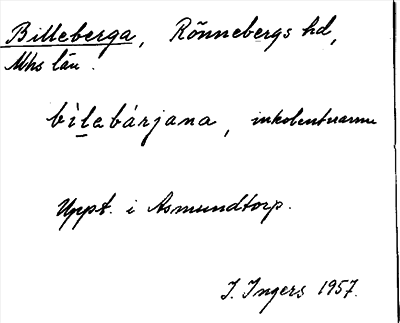 Billeberga, Rönnebergs hd,
Mhs län.
bìlabárjana, inkolentnamn
Uppt. i Asmundtorp.
I. Ingers 1957.